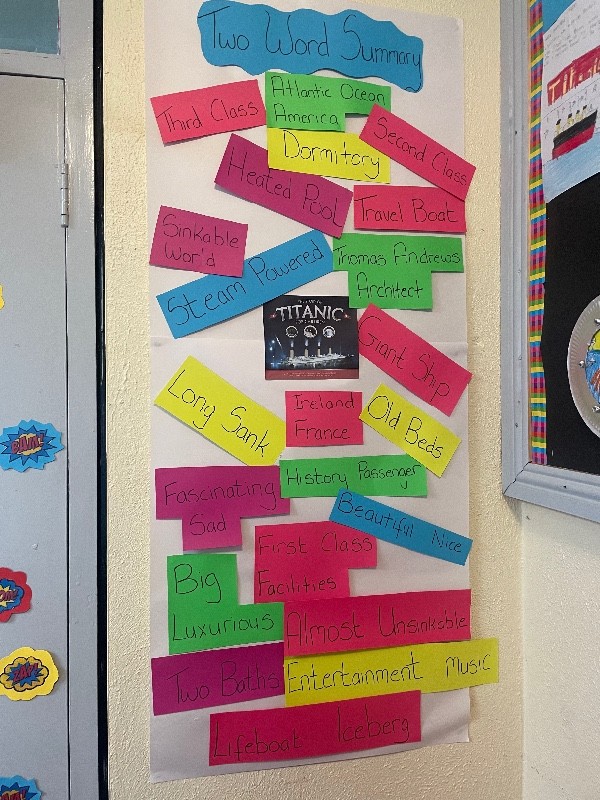 Two Word Summary
Third Class
Atlantic Ocean
America
Second Class
Dormitory
Heated Pool
Travel Boat
Sinkable
Wor'd
Steam Powered
Thomas Andrews
Architect
TITANIC
Giant Ship
Long Sank
Ireland
France
Old Beds
History Passenger
Fascinating
Sad
Beautiful Nice
First Class
Facilities
Big
Luxurious
Almost Unsinkable
Two Baths
Entertainment Music
Lifeboat Iceberg